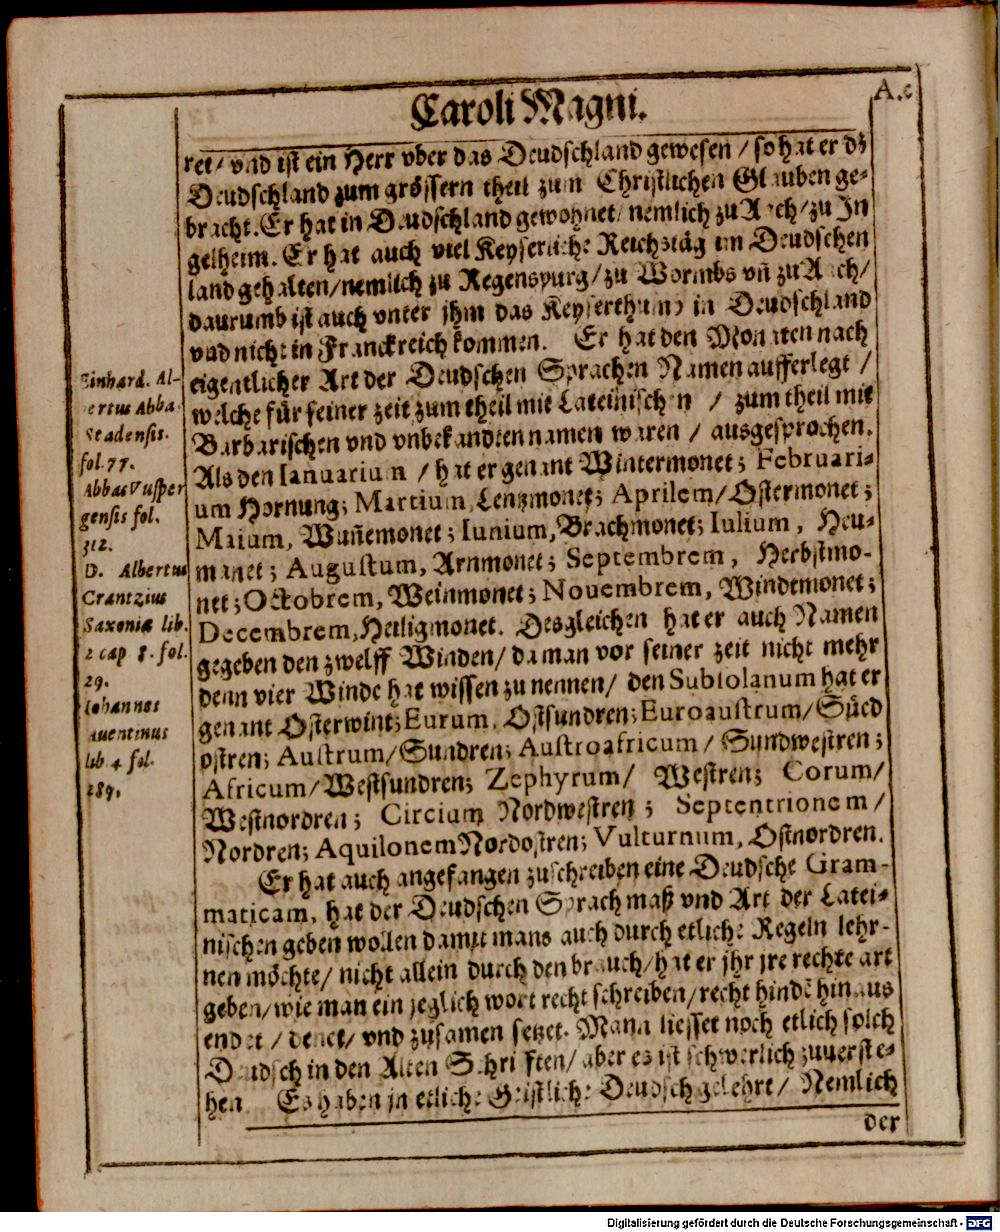 Caroli Magni.
A.c
ret/ vnd ist ein Herr vber das Deudschland gewesen / so hat er dz
Deudschland zum grössern theil zum Christlichen Glauben ge-
bracht. Er hat in Deudschland gewohnet/ nemlich zu Aach/zu In
gelheim. Er hat auch viel Keyserliche Reichstäg im Deudschen
land gehalten/nemlich zu Regenspurg/zu Wormbs vñ zu Aach/
daurumb ist auch vnter jhm das Keyserthumb in Deudschland
vnd nicht in Franckreich kommen. Er hat den Monaten nach
eigentlicher Art der Deudschen Sprachen Namen aufferlegt /
welche für seiner zeit zum theil mit Lateinischen / zum theil mit
Barbarischen vnd vnbekandten namen waren / ausgesprochen.
Als den Ianuarium / hat er genant Wintermonet; Februari-
um Hornung; Martium, Lentzmonet; Aprilem/Ostermonet;
Maium, Wuñemonet; Iunium, Brachmonet; Iulium, Heu-
manet; Augustum, Arnmonet; Septembrem, Herbstmo-
net; Octobrem, Weinmonet; Nouembrem, Windtmonet;
Decembrem, Heiligmonet. Desgleichen hat er auch Namen
gegeben den zwelff Winden/ da man vor seiner zeit nicht mehr
denn vier Winde hat wissen zu nennen/ den Subsolanum hat er
genant Osterwint; Eurum, Ostsundren; Euroaustrum/Sued
ostren; Austrum/Sundren; Austroafricum / Sundwestren;
Africum/Westsundren; Zephyrum/ Westren; Corum/
Westnordren; Circium Nordwestren; Septentrionem/
Nordren; Aquilonem Nordostren; Vulturnum, Ostnordren.
Er hat auch angefangen zuschreiben eine Deudsche Gram-
maticam, hat der Deudschen Sprach maß vnd Art der Latei-
nischen geben wollen damit mans auch durch etliche Regeln lehr-
nen möchte/ nicht allein durch den brauch/hat er jhr jre rechte art
geben/wie man ein jeglich wort recht schreiben/recht hindē hinaus
endet / denet/ vnd zusamen setzet. Mann liesset noch etlich solch
Deudsch in den Alten Schrifften/ aber es ist schwerlich zuuerste-
hen Es haben ja etliche Geistliche Deudsch gelehrt/ Nemlich
der
Einhard. Al-
bertus Abba
Stadensis.
fol. 77.
Abbas Vusper
gensis fol.
312.
D. Albertus
Crantzius
Saxoniæ lib.
2 cap 8. fol.
29.
Iohannes
Auentinus
lib 4 fol.
289.
Digitalisierung gefördert durch die Deutsche Forschungsgemeinschaft - DFG